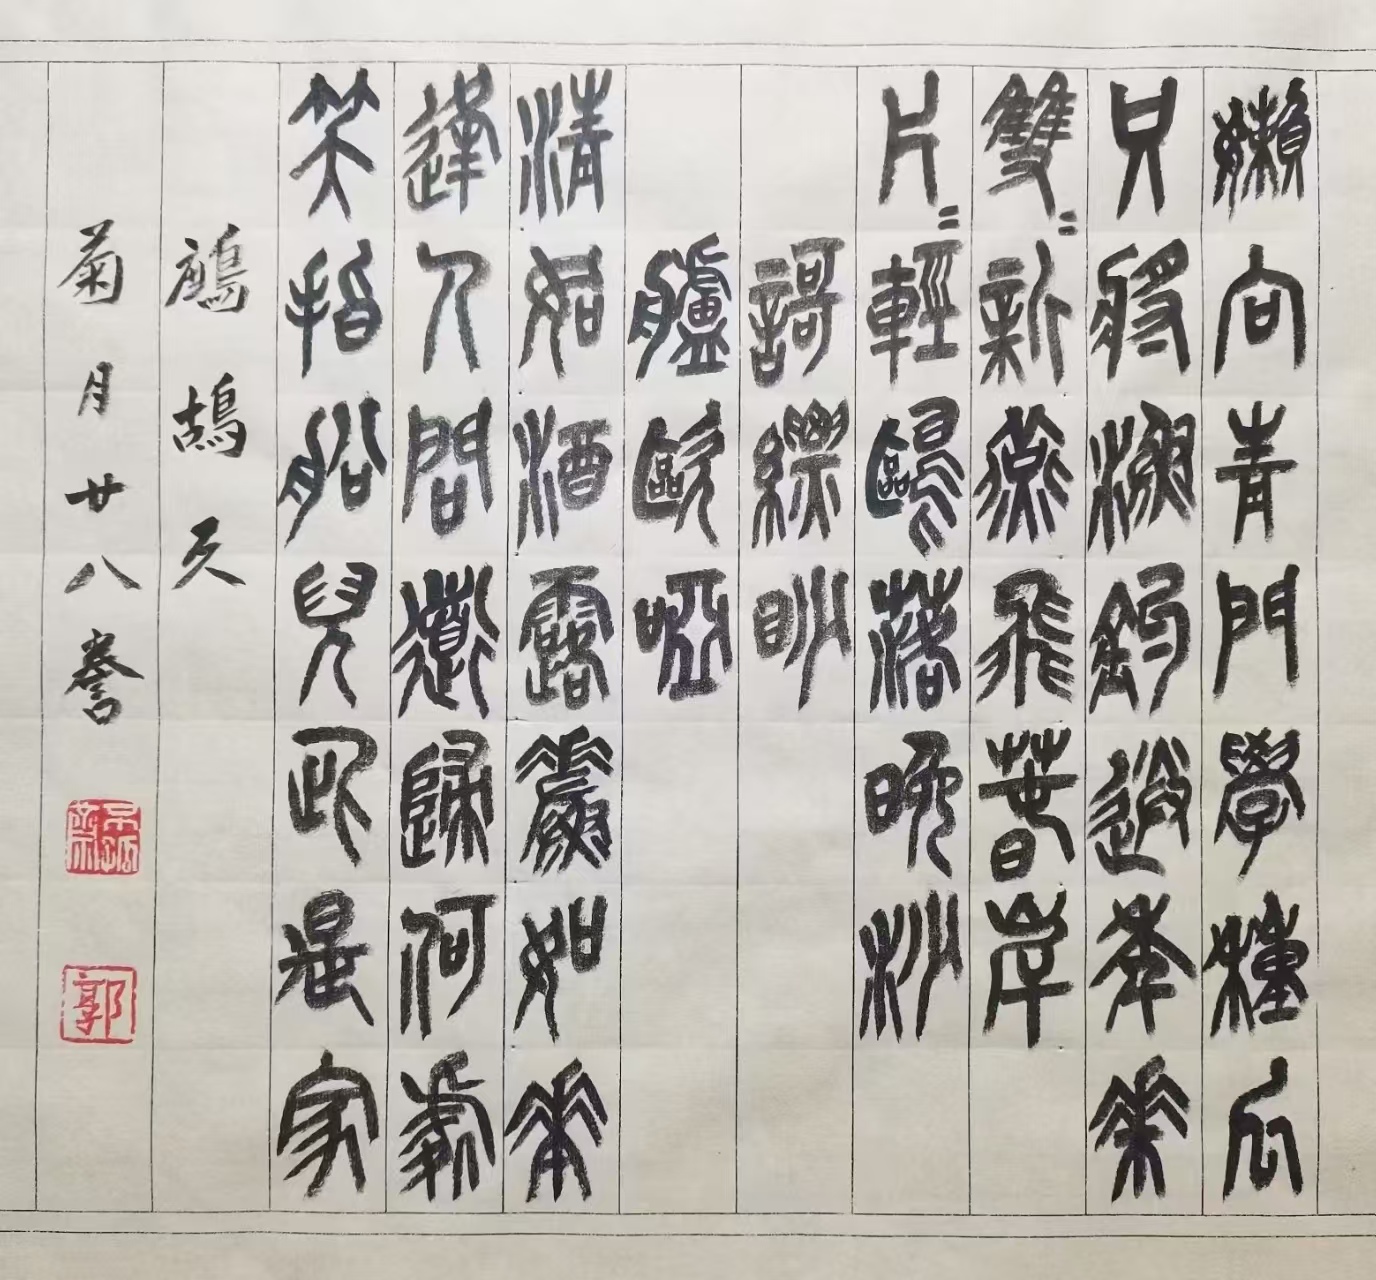 嬾向青門學種瓜
只將漁釣送年華
雙〻新燕飛春岸
片〻輕鷗落晚沙
謌縹眇
艫歐啞
清如酒露鮺如華
逢人問道歸何處
笑指船兒此是家
鷓鴣天
菊月廿八誊
郭